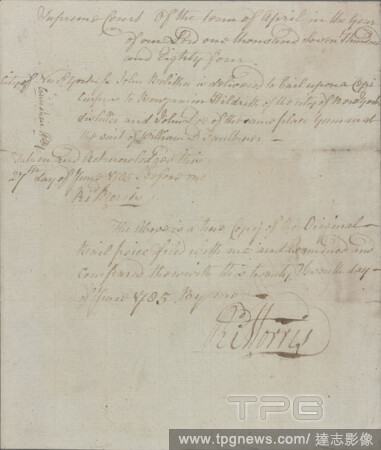 Supreme Court of the term of April in the Year
of our Lord one thousand seven hundred
and Eighty four
City of New York Ss John is delivered to bail upon a Cepi
Corpus to Benjamin Hildreth of the city of New York
distiller and John Doe of the same place Yeoman at
the suit of William D Faulkner
Taken and Acknowledged this
27th day of June 1785 Before me
Ri Morris
The Above is a true Copy of the Original
Bail piece filed with me and examined and
compared therewith this twenty seventh day
of June 1785 By me
Ri Morris
TPG
www.tpgnews.com / 達志影像